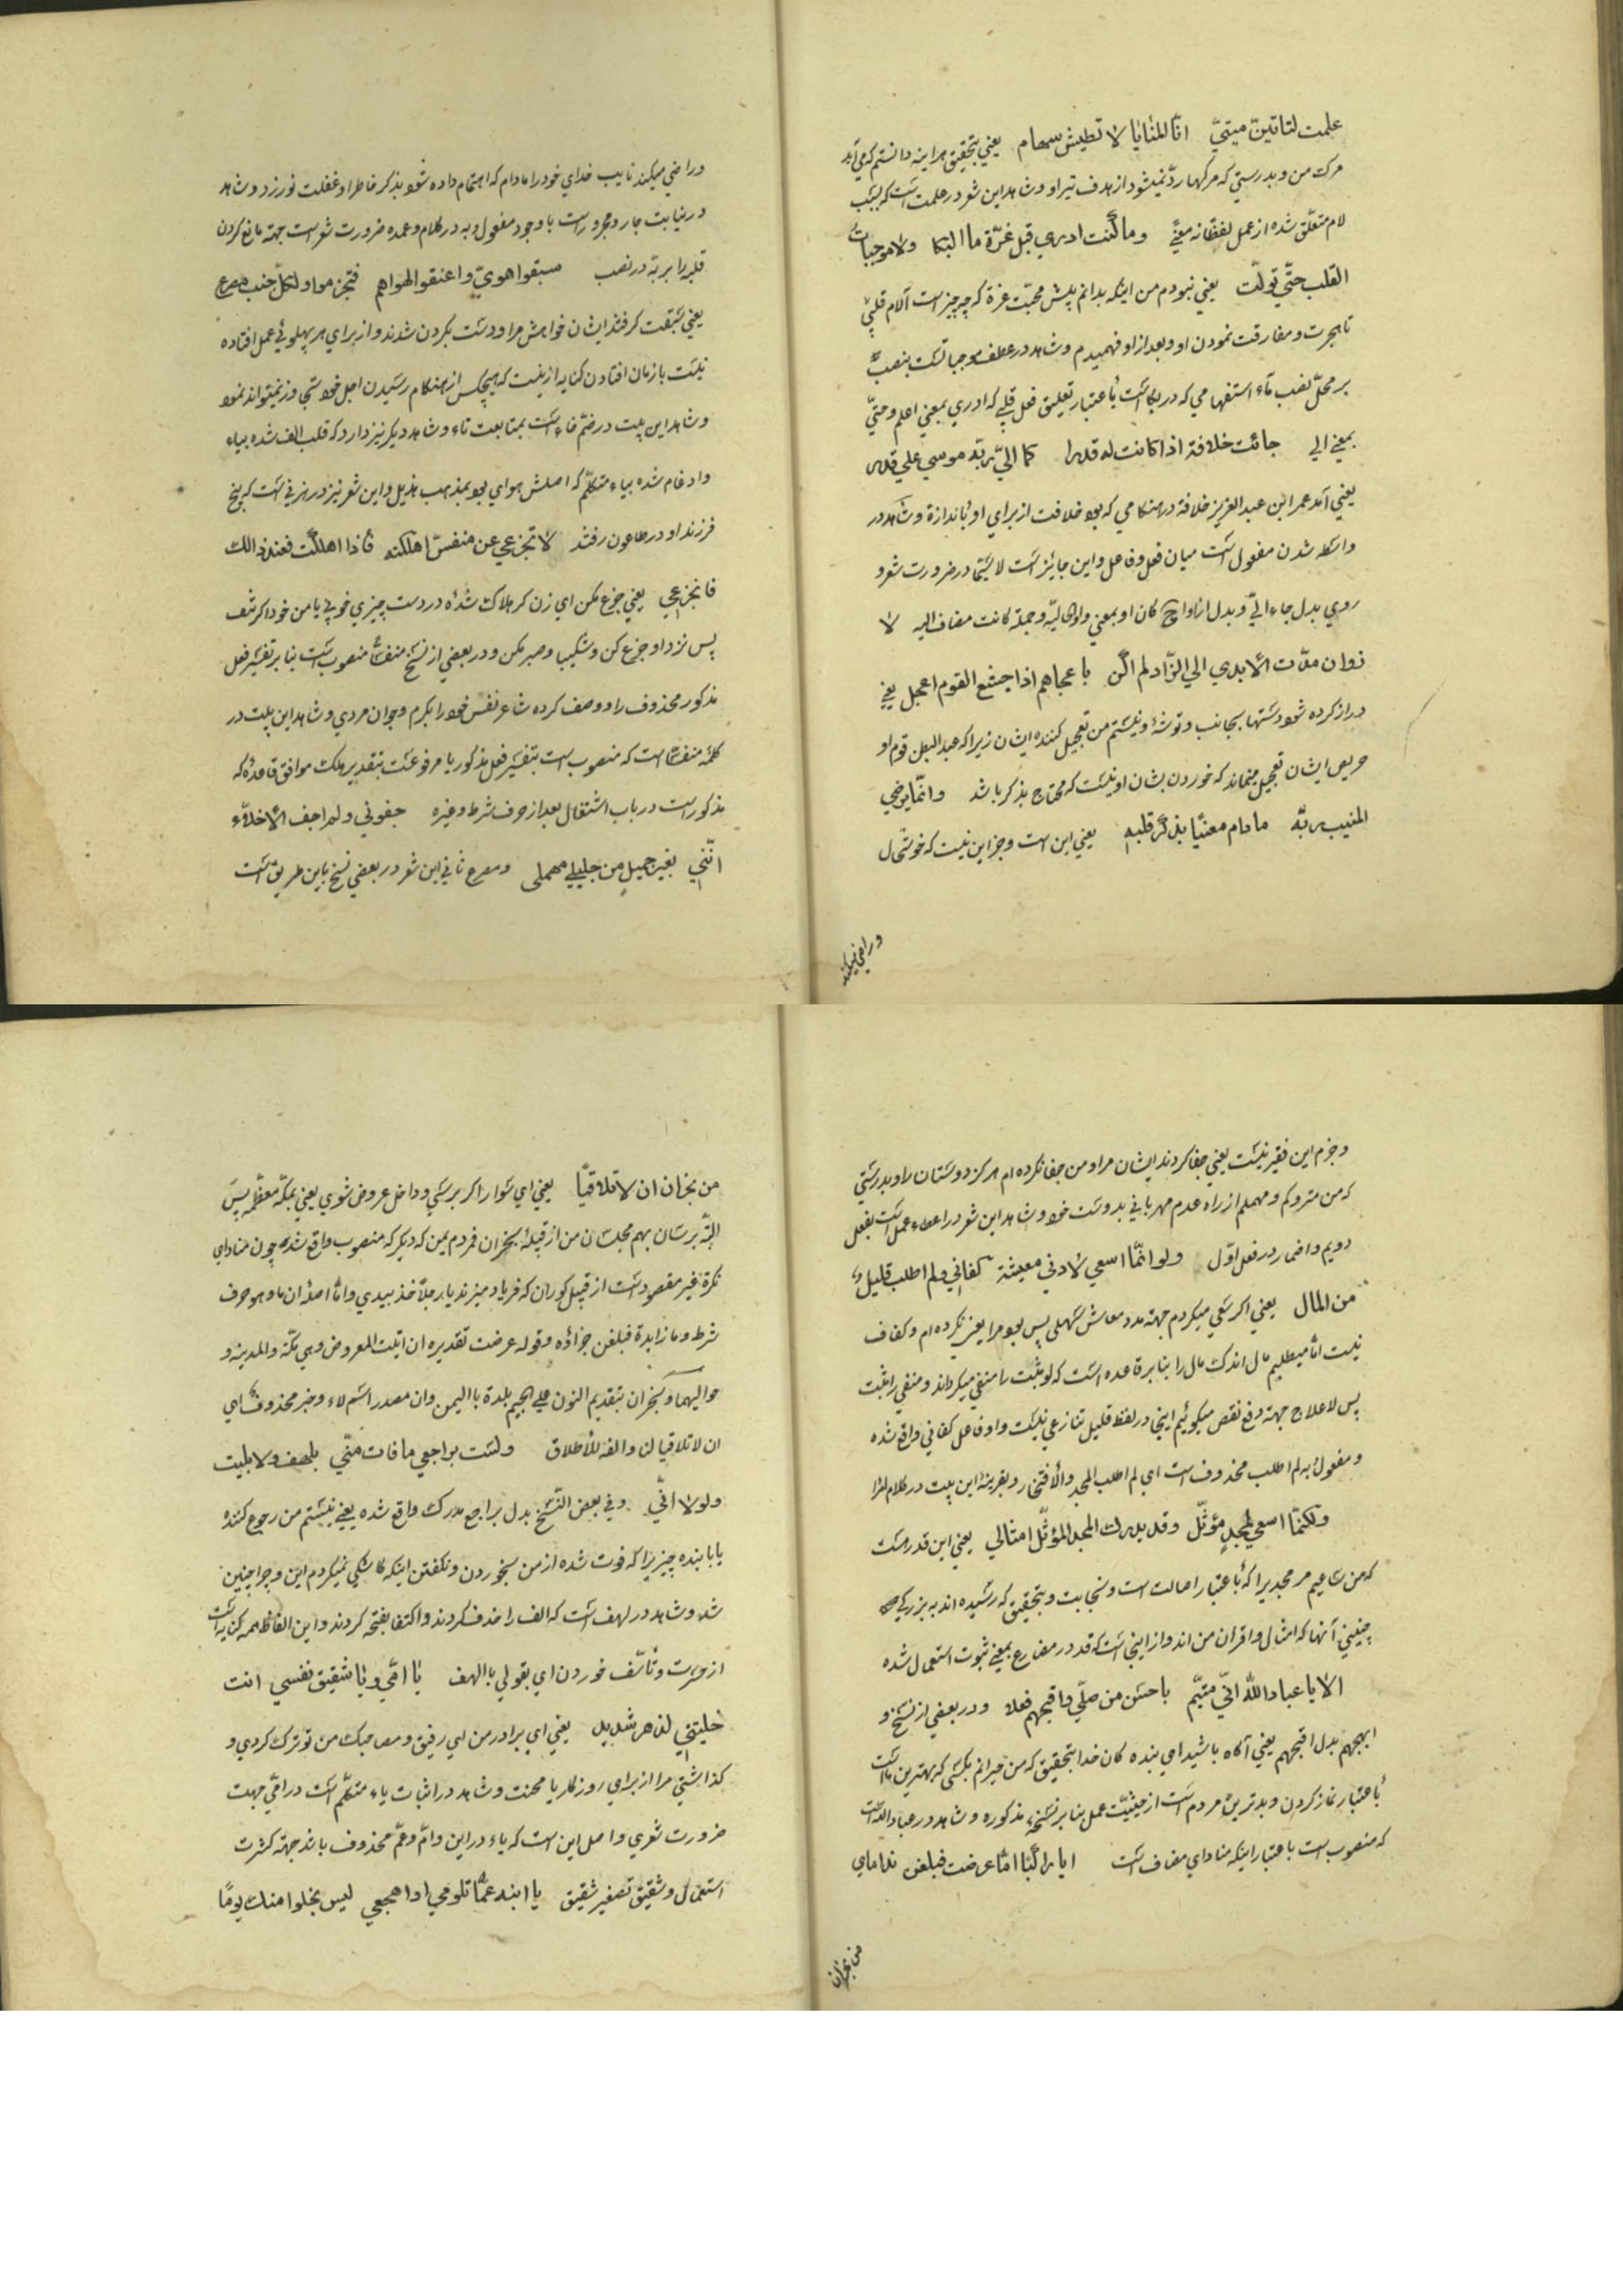 علمت لتاتینّ میتيّ انّ المنایا لا تطیش سهام یعني بتحقیق هراینه دانستم که مي آید
مرک من و بدرستي که مرکها ردّ نمیشود از هدف تیر او و شاهد این شعر در علمت است که بسبب
لام متعلّق شده از عمل لفظا نه معنيً وما کنت ادري قبل عزّة ما البکا ولا موجبات
القلب حتّي تولّت یعني نبودم من اینکه بدانم پیش محبّت عزة که چه چیز است آلام قلبي
تا هجرت و مفارقت نمودن او و بعد از او فهمیدم و شاهد در عطف موجباتست بنصب
بر محلّ نصب ماء استفهامي که در بکا است باعتبار تعلیق فعل قلبي که ادري بمعني اعلم و حتيّ
بمعني الي جائت خلافة اذا کانت له قدرا کما اتيّ ربّه موسي علي قدر
یعني آمد عمر ابن عبد العزیز خلافة در هنکامي که بود خلافت از براي او باندازة و شاهد در
واسطه شدن مفعول است میان فعل و فاعل و این جائز است لا سیّما در ضرورت شعر و
روي بدل جاء اتيّ و بدل اذا واو کان او بمعني واو حالیّه و جملة کانت مضاف الیه لا
ذوان مدّت الایدي الي الزّاد لم اکن باعجلهم اذا جشع القوم اعجل یعني
دراز کرده شود دستها بجانب و توشۀ و نیستم من تعجیل کننده ایشان زیرا که عبد البطن قوم او
حریص ایشان تعجیل مینماید که خوردن بشان او نیست که محتاج بذکر باشد وانّما یرضي
المنیب ربّه مادام معنیًا بذکر قلبه یعني این است و جز این نیست که خوشحال
و راضي میکند
و راضي میکند نایب خداي خود را مادام که اهتمام داده شود بذکر خاطر او غفلت نورزد و شاهد
در نیابت جار و مجرور است با وجود مفعول به در کلام و عمده ضرورت شعر است جهة مانع کردن
قلبه را بر به در نصب سبقوا هويّ واعنقوا لهواهم فتخرموا ولکلّ جنب مصرع
یعني سبقت کرفتند ایشان خواهش مرا و دست بکردن شدند و از براي هر پهلوئي محل افتاده
نیست بازمان افتادن کنایه ازینست که هیچکس از هنکام رسیدن اجل خود تجاوز نمیتواند نمود
و شاهد این بیت در ضمّ خاء است بمتابعت تاء و شاهد دیکر نیز دارد که قلب الف شده بیاء
و ادغام شده بیاء متکلّم که اصلش هواي بود بمذهب هذیل و این شعر نیز در مرثي است که پنج
فرزند او در طاعون رفتند لا تجزعي عن منفسّ اهلکته فاذا اهلکت فعند ذالک
فاجزعي یعني جزع مکن اي زن کر هلاک شده در دست چیزي خوبي یا من خود اکر شد
پس نزد او جزع کن و شکیبا و صبر مکن و در بعضي از نسخ منفسًا منصوب است بنا بر تفسیر فعل
مذکور محذوف را و وصف کرده شاعر نفس خود را بکرم و جوان مردي و شاهد این بیت در
کلمۀ منفسًا است که منصوب است بتفسیر فعل مذکور یا مرفوعست بتقدیر هلک موافق قاعدۀ که
مذکور است در باب اشتغال بعد از حرف شرط و غیره جفوني ولم اجف الاخلاّء
انّني بغیر جمیل من خلیلي مهملي و مصرع ثاني این شعر در بعضي نسخ باین طریق است
و جزم این فقیر نیست یعني جفا کردند ایشان مرا و من جفا نکرده ام هرکز دوستان را و بدرستي
که من متروکم و مهملم از راه عدم مهرباني بدوست خود و شاهد این شعر در اعطاء عمل است بفعل
دویم و اضمار در فعل اوّل ولو انّما اسعي لادني معیشة کفاني ولم اطلب قلیل
من المال یعني اکر سعي میکردم جهة مدد معاش سهلي پس بود مرا یعني نکرده ام و کفاف
نیست امّا میطلبم مال اندک مال را بنا بر قاعده است که لو مثبت را منفي میکرداند و منفي را مثبت
پس لا علاج جهة دفع نقص میکوئیم اینجا در لفظ قلیل تنازعي نیست و او فاعل کفاني واقع شده
و مفعول به لم اطلب محذوف است اي لم اطلب المجد والافتخار و بقرینۀ این بیت در کلام لهذا
ولکنّما اسعي لمجد مؤثّل وقد یدرک المجد المؤثّل امثالي یعني این قدر هست
که من ساعیم مر مجدي را که باعتبار اصالت است و نجابت و بتحقیق که رسیده اند به بزرکي
چنیني آنها که امثال و اقران من اند و از اینجا است که قد در مضارع بمعني ثبوت استعمال شده
الا یا عباد اللّه انّي متیّم باحسن من صلّي واقبحهم فعلا و در بعضي از نسخ و
ابهجهم بدل اقبحهم یعني آکاه باشید اي بنده کان خدا بتحقیق که من حیرانم بکسي که بهترین ناس است
باعتبار نماز کردن و بدترین مردم است از حیثیّت عمل بنا بر نسخۀ مذکوره و شاهد در عباد اللّه است
که منصوب است باعتبار اینکه مناداي مضاف است ایا راکبًا امّا عرضت فبلّغن نداماي
من نجران
من نجران ان لا تلاقیًا یعني اي سوارا اکر برسي و داخل عروض شوي یعني بمکّه معظّمه پس
البتّه برسان بهم مجلسان من از قبیلۀ نجران مردم یمن که دیکر که منصوب واقع شده چون مناداي
نکرة غیر مقصود است از قبیل کوران که فریاد میزند یا رجلًا خذ بیدي وامّا اصله ان ما و هو حرف
شرط و ما زایدة فبلغن جزاؤه وقوله عرضت تقدیره ان اتیت العروض وهي مکّة والمدینه و
حوالیهما ونجران بتقدیم النون علي الجیم بلدة باالیمن وان مصدر اسم لاء وخبر محذوف اي
ان لا تلاقیا لنا والفه للاطلاق ولست براجعي ما فات منّي بلهف ولا بلیت
ولو لا انّي وفي بعض النسّخ بدل براجع مدرک واقع شده یعني نیستم من رجوع کننده
یا بابنده چیزیرا که فوت شده از من بخوردن و نکفتن اینکه کاشکي نمیکردم این و چرا چنین
شد و شاهد در لهف است که الف را حذف کردند و اکتفا بفتحه کردند و این الفاظ همه کنایه است
از حسرت و تأسّف خوردن اي بقولي یا الهف یا امّي ویا شقیق نفسي انت
خلیتني لدهر شدید یعني اي برادر من اي رفیق و مصاحبک من تو ترک کردي و
کذاشتي مرا از براي روزکار یا محنت و شاهد در اثبات یاء متکلّم است در امّي جهت
ضرورت شعري و اصل این است که یاء در ابن و امّ و عمّ محذوف باشد جهة کثرت
استعمال و شقیق تصغیر شقیق یا ابنه عمّا تلومي اواهجعي لیس یخلوا منک یومًا